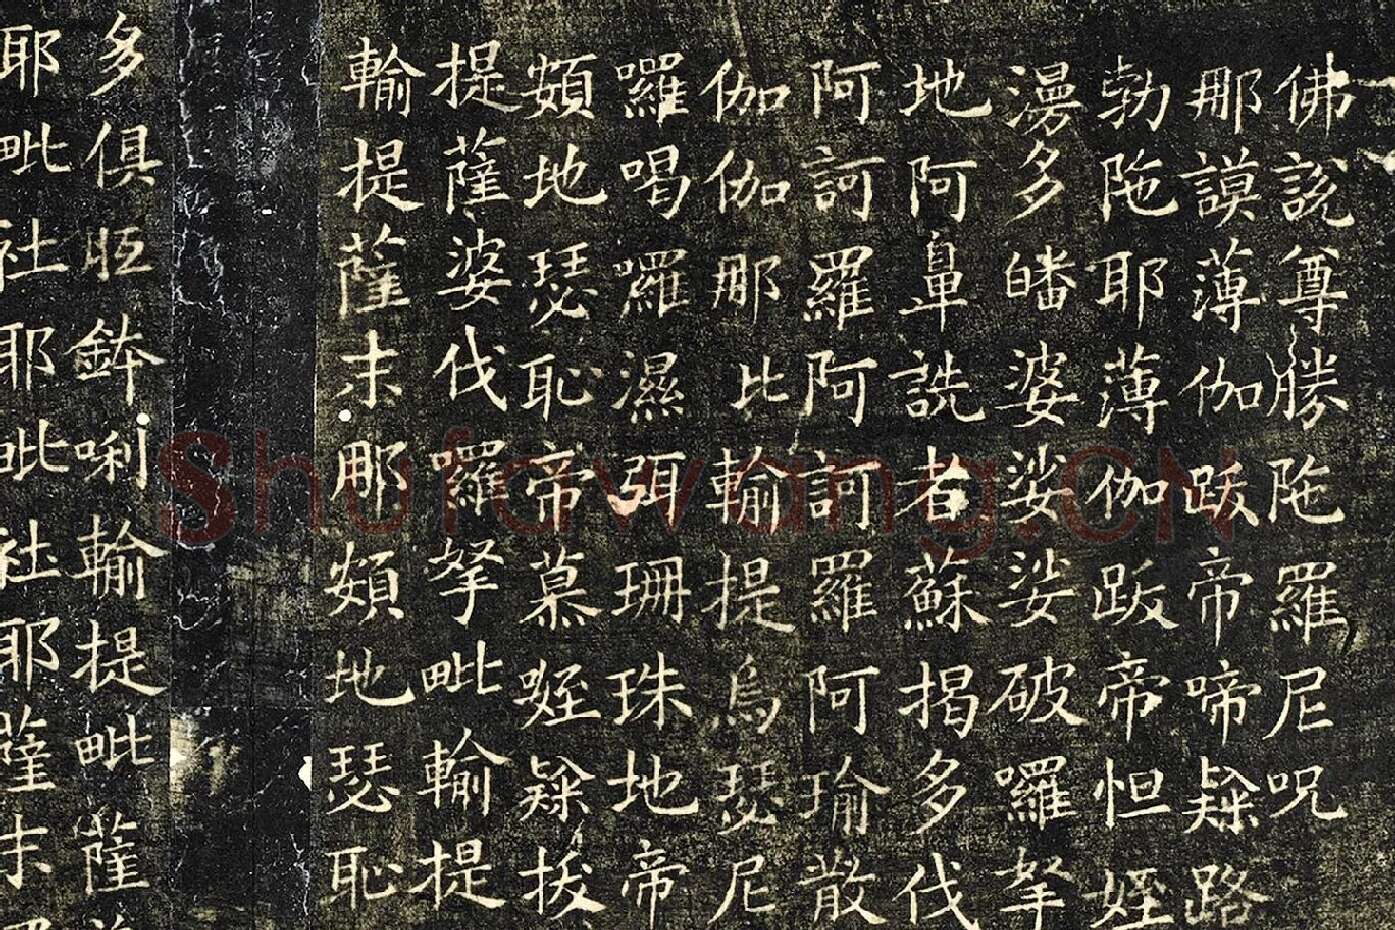 佛說尊勝陁羅尼呪
那謨薄伽跋帝啼隸路
勃陁耶薄伽跋帝怛姪
漫多皤婆娑娑破囉拏
地阿鼻詵者蘇揭多伐
阿訶羅阿訶羅阿瑜散
伽伽那比輸提烏瑟尼
囉喝囉濕弭珊珠地帝
頞地瑟耻帝慕姪隸拔
提薩婆伐囉拏毗輸提
輸提薩末那頞地瑟耻
多俱胝鉢唎輸提毗薩
耶毗社耶毗社耶薩末
Shufawang.CN